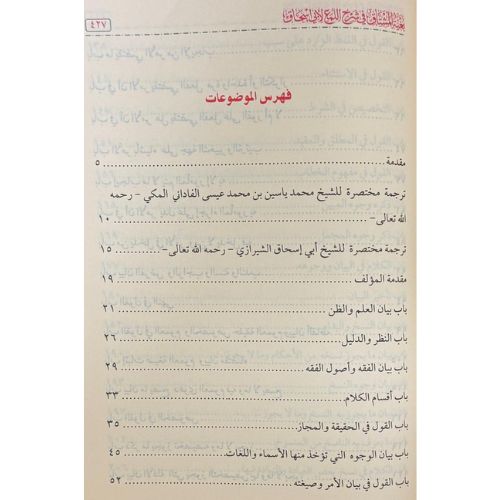 بغية المشتاق في شرح اللمع لأبي إسحاق
٤٢٧
فهرس الموضوعات
مقدمة ٥
ترجمة مختصرة للشيخ محمد ياسين بن محمد عيسى الفاداني المكي - رحمه
الله تعالى- ١٠
ترجمة مختصرة للشيخ أبي إسحاق الشيرازي - رحمه الله تعالى- ١٥
مقدمة المؤلف ١٩
باب بيان العلم والظن ٢١
باب النظر والدليل ٢٦
باب بيان الفقه وأصول الفقه ٢٩
باب أقسام الكلام ٣٣
باب القول في الحقيقة والمجاز ٣٥
باب بيان الوجوه التي تؤخذ منها الأسماء واللغات ٤٥
باب القول في بيان الأمر وصيغته ٥٢